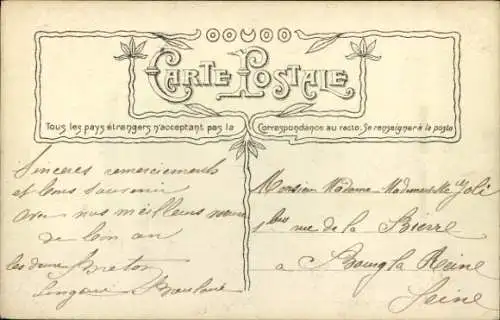 CARTE POSTALE
Tous les pays étrangers n'acceptant pas la Correspondance au recto. Se renseigner à la poste
Sincères remerciements
et bons souvenir
avec nos meilleurs
de bon an
les deux Breton
Monsieur Madame Mademoiselle Joli
1 bis rue de la Bièvre
à Bourg la Reine
Seine